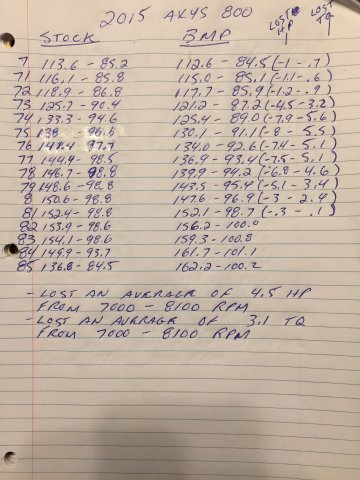 2015 AXYS 800
STOCK BMP LOST HP LOST TQ
7 113.6 - 85.2 112.6 - 84.5 (-1 - .7)
71 116.1 - 85.8 115.0 - 85.1 (-1.1 - .6)
72 118.9 - 86.8 117.7 - 85.9 (-1.2 - .9)
73 125.7 - 90.4 121.2 - 87.2 (-4.5 - 3.2)
74 133.3 - 94.6 125.4 - 89.0 (-7.9 - 5.6)
75 138 - 96.6 130.1 - 91.1 (-8 - 5.5)
76 141.4 - 97.7 134.0 - 92.6 (-7.4 - 5.1)
77 144.4 - 98.5 136.9 - 93.4 (-7.5 - 5.1)
78 146.7 - 98.8 139.9 - 94.2 (-6.8 - 4.6)
79 148.6 - 98.8 143.5 - 95.4 (-5.1 - 3.4)
8 150.6 - 98.8 147.6 - 96.9 (-3 - 2.4)
81 152.4 - 98.8 152.1 - 98.7 (-.3 - .1)
82 153.9 - 98.6 156.2 - 100.0
83 154.1 - 98.6 159.3 - 100.8
84 149.9 - 93.7 161.7 - 101.1
85 136.8 - 84.5 162.2 - 100.2
- LOST AN AVERAGE OF 4.5 HP
FROM 7000 - 8100 RPM
- LOST AN AVERAGE OF 3.1 TQ
FROM 7000 - 8100 RPM